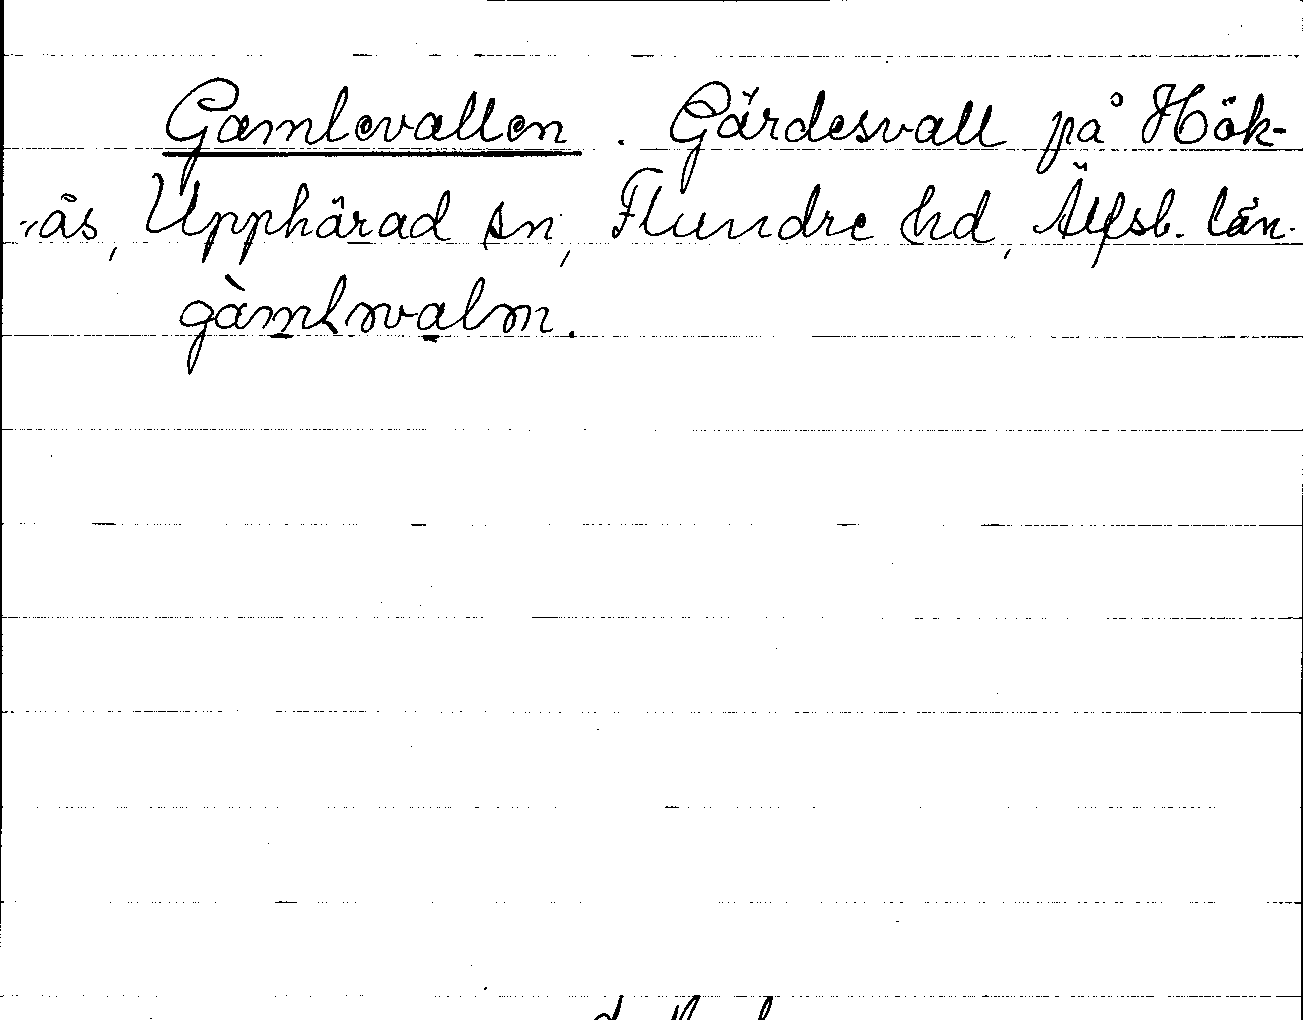 Gamlevallen. Gärdesvall på Hök-
ås, Upphärad sn, Flundre hd, Älfsb. län.